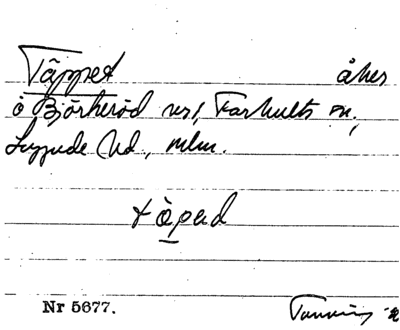 Täppet åker
å Björkeröd nr 1, Farhults sn,
Luggude hd, mlm.
täpad
Nr 5677.